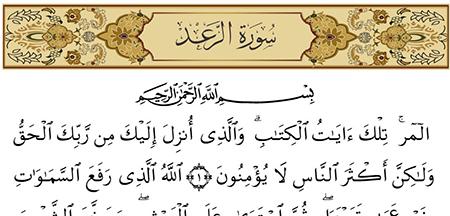 سُورَةُ الرَّعْدِ
بِسْمِ ٱللَّهِ ٱلرَّحْمَٰنِ ٱلرَّحِيمِ
الٓمٓر ۚ تِلْكَ ءَايَٰتُ ٱلْكِتَٰبِ ۗ وَٱلَّذِىٓ أُنزِلَ إِلَيْكَ مِن رَّبِّكَ ٱلْحَقُّ
وَلَٰكِنَّ أَكْثَرَ ٱلنَّاسِ لَا يُؤْمِنُونَ ﴿١﴾ ٱللَّهُ ٱلَّذِى رَفَعَ ٱلسَّمَٰوَٰتِ